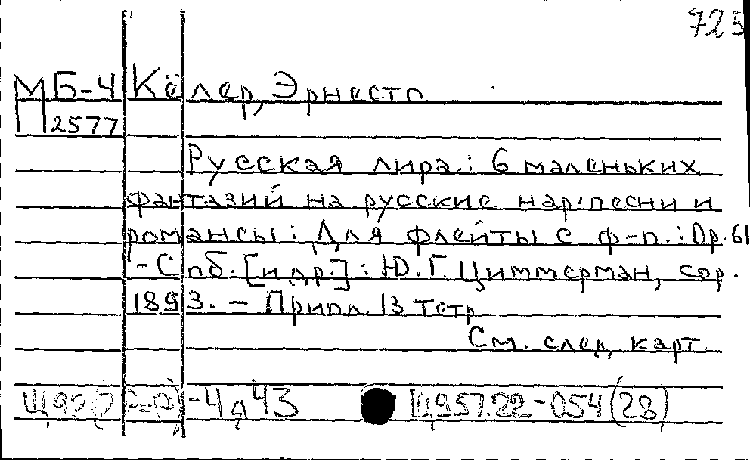 725
МБ-4 Кёлер, Эрнесто
П 2577
Русская лира: 6 маленьких
фантазий на русские нар. песни и
романсы: Для флейты с ф-п.: Op. 61
- Спб. [и др.]: Ю. Г. Циммерман, cop.
1893. – Прилл. 13 тетр
См. след. карт
-4 д 43 Щ957.22-054(28)